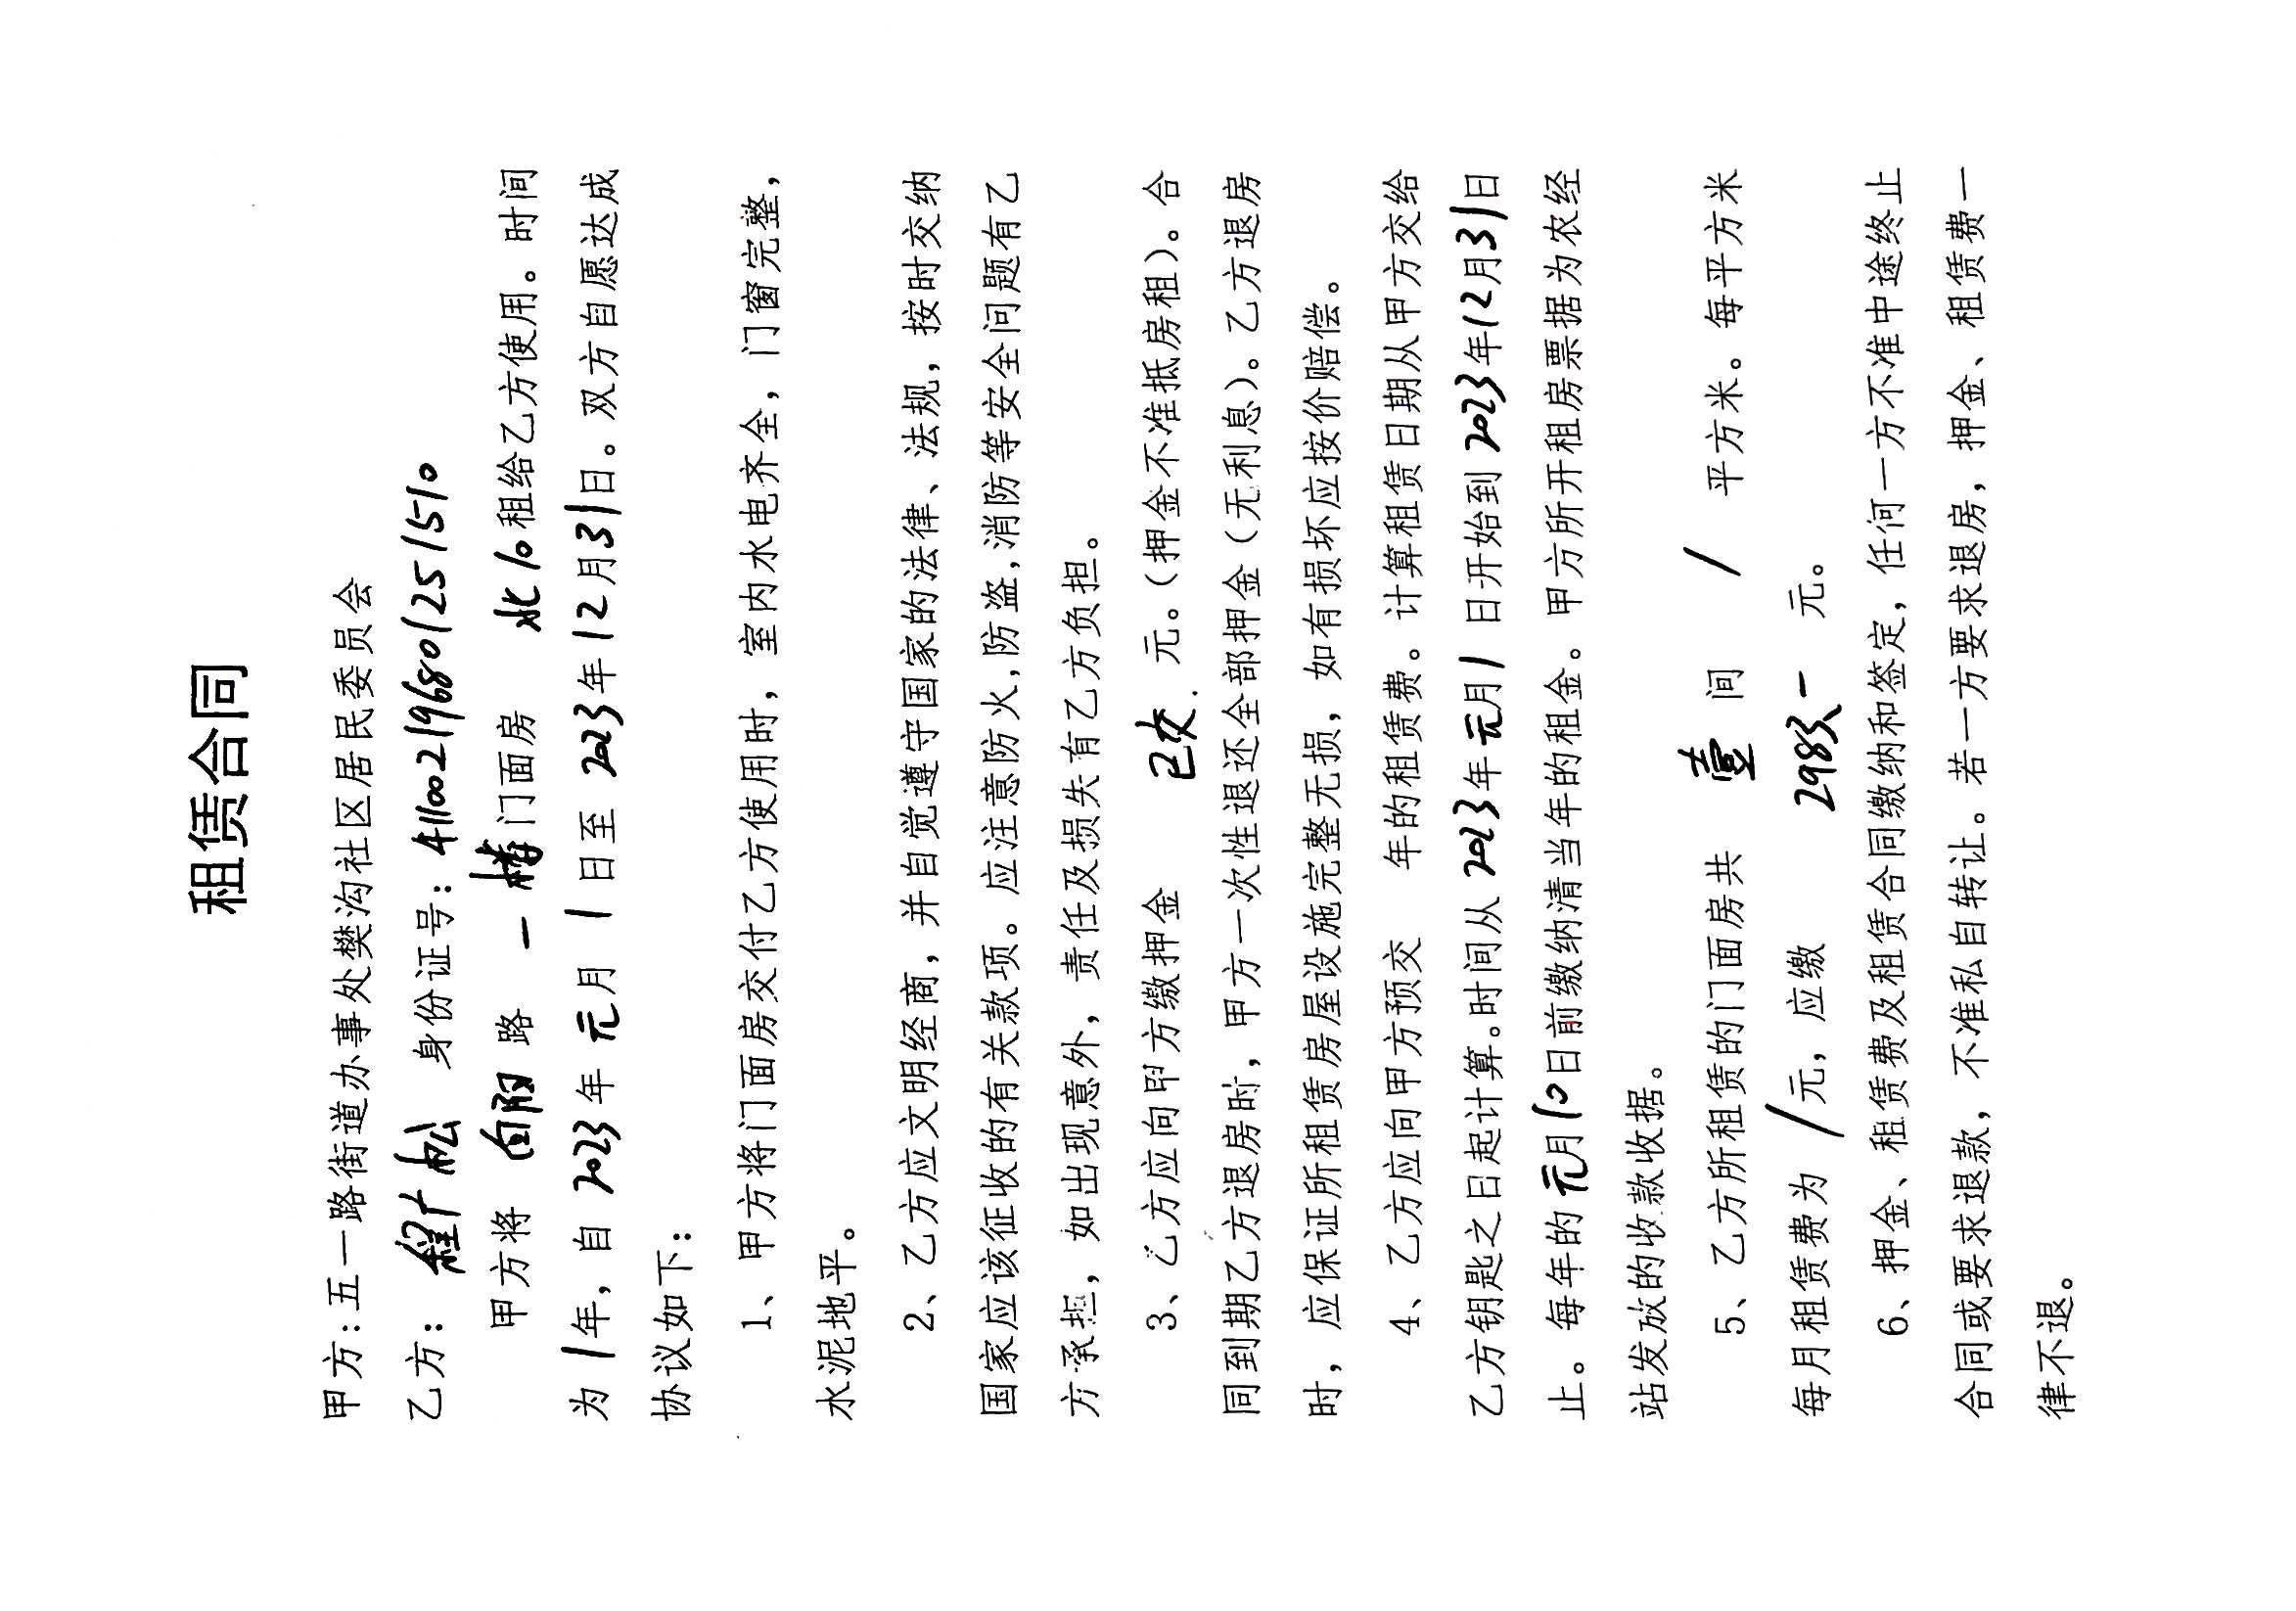 租赁合同
甲方：五一路街道办事处樊沟社区居民委员会
乙方： 程广松 身份证号：411002196801251510
甲方将 向阳 路 一楼 门面房 北10 租给乙方使用。时间
为1年，自 2023 年 元 月 1 日至 2023 年12月31日。双方自愿达成
协议如下：
1、甲方将门面房交付乙方使用时，室内水电齐全，门窗完整，
水泥地平。
2、乙方应文明经商，并自觉遵守国家的法律、法规，按时交纳
国家应该征收的有关款项。应注意防火,防盗,消防等安全问题有乙
方承担，如出现意外，责任及损失有乙方负担。
3、乙方应向甲方缴押金 已交 元。（押金不准抵房租）。合
同到期乙方退房时，甲方一次性退还全部押金（无利息）。乙方退房
时，应保证所租赁房屋设施完整无损，如有损坏应按价赔偿。
4、乙方应向甲方预交 年的租赁费。计算租赁日期从甲方交给
乙方钥匙之日起计算。时间从 2023 年 元月1 日开始到 2023 年12月31日
止。每年的 元月10日前缴纳清当年的租金。甲方所开租房票据为农经
站发放的收款收据。
5、乙方所租赁的门面房共 壹 间 / 平方米。每平方米
每月租赁费为 / 元，应缴 元。
6、押金、租赁费及租赁合同缴纳和签定，任何一方不准中途终止
合同或要求退款，不准私自转让。若一方要求退房，押金、租赁费一
律不退。